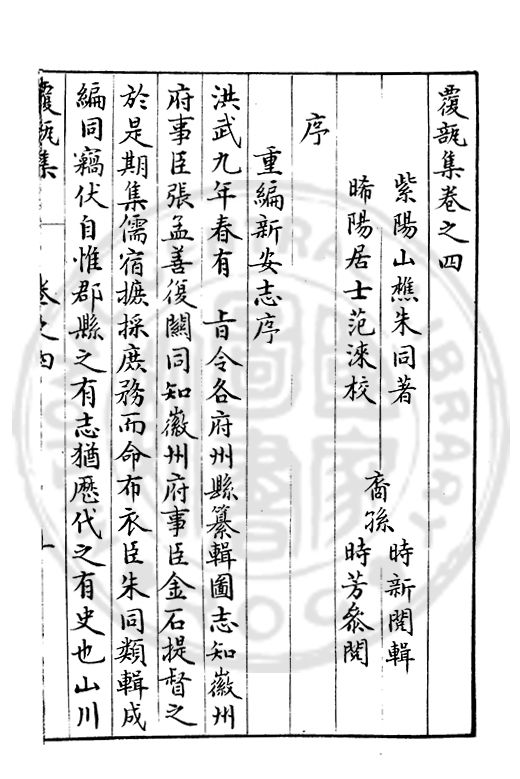 覆瓿集卷之四
紫陽山樵朱同著
裔孫
時新閱輯
晞陽居士范淶校
時芳叅閱
序
重編新安志序
洪武九年春有　㫖令各府州縣纂輯圖志知徽州
府事臣張孟善復關同知徽州府事臣金石提督之
於是期集儒宿摭採庶務而命布衣臣朱同類輯成
編同竊伏自惟郡縣之有志猶歷代之有史也山川
覆瓿集
卷之四